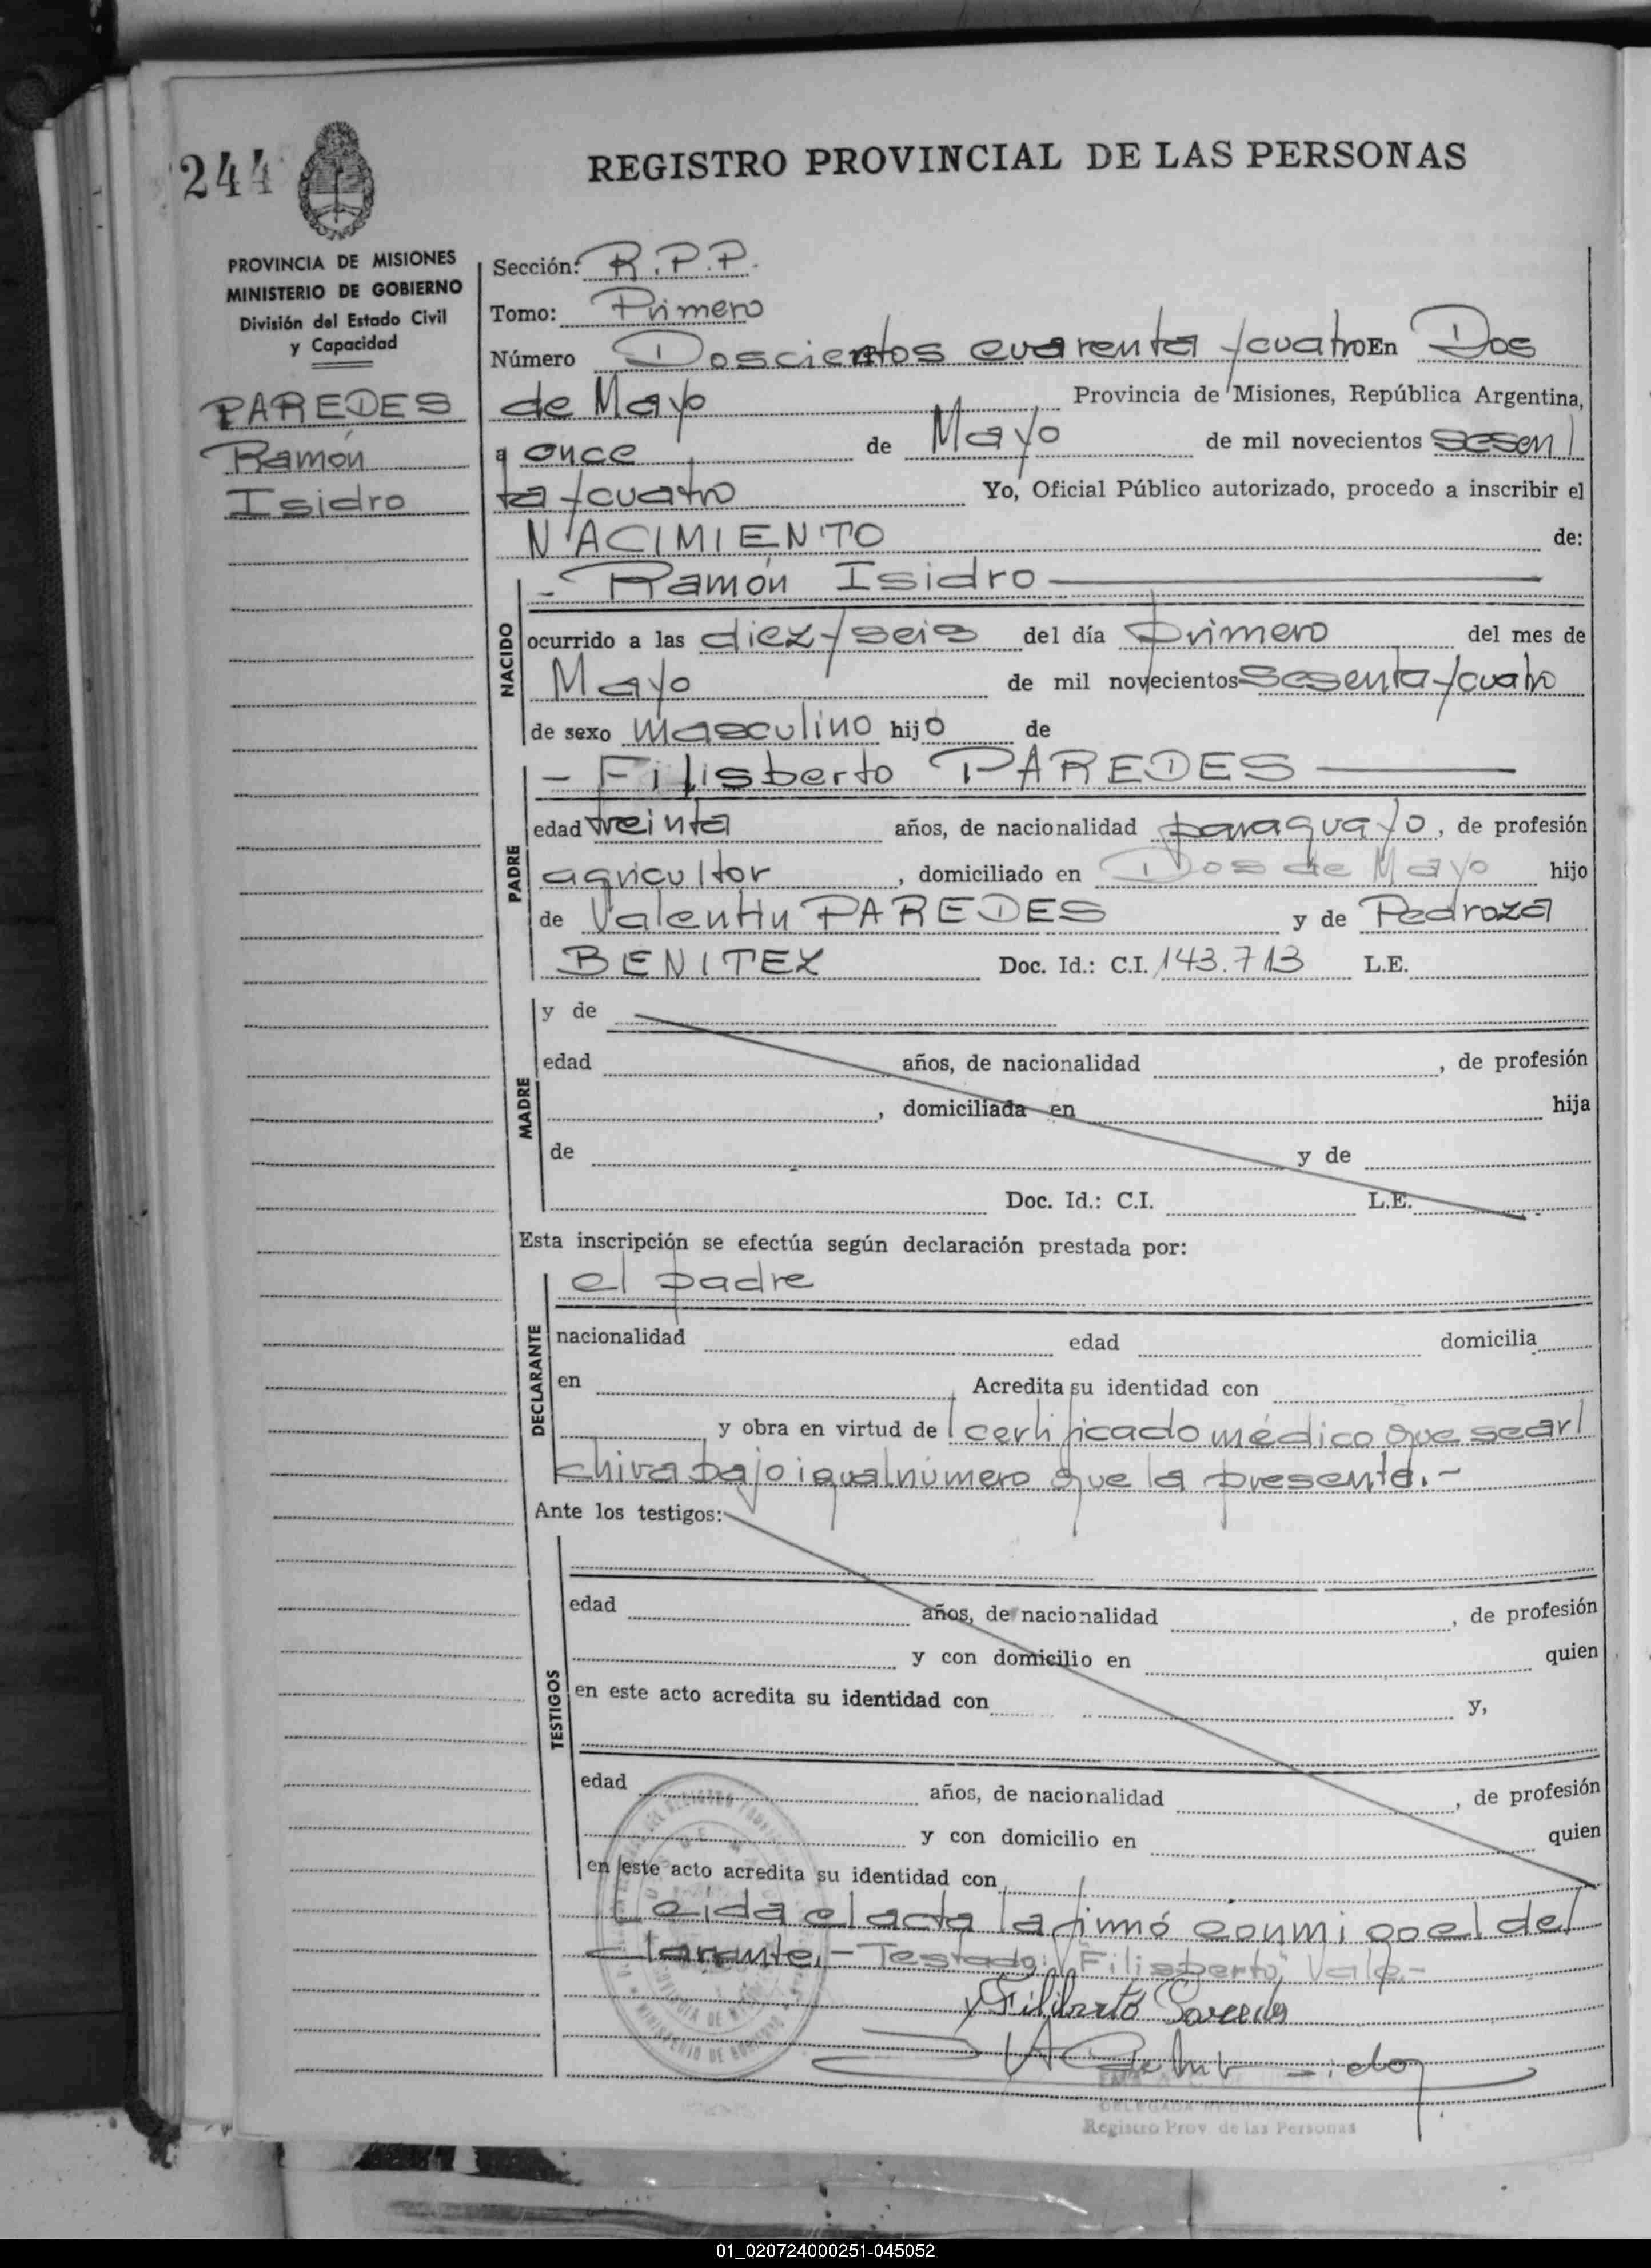 244
REGISTRO PROVINCIAL DE LAS PERSONAS
PROVINCIA DE MISIONES
MINISTERIO DE GOBIERNO
División del Estado Civil
y Capacidad
PAREDES
Ramón
Isidro
Sección: R.P.P.
Tomo: Primero
Número Doscientos cuarenta y cuatro En Dos
de Mayo Provincia de Misiones, República Argentina,
a once de Mayo de mil novecientos sesen
ta y cuatro Yo, Oficial Público autorizado, procedo a inscribir el
NACIMIENTO de:
NACIDO
- Ramón Isidro
ocurrido a las diez y seis del día primero del mes de
Mayo de mil novecientos sesenta y cuatro
de sexo masculino hijo de
PADRE
- Filisberto PAREDES
edad treinta años, de nacionalidad paraguayo, de profesión
agricultor, domiciliado en Dos de Mayo hijo
de Valentin PAREDES y de Pedroza
BENITEZ Doc. Id.: C.I. 143.713 L.E.
MADRE
y de
edad años, de nacionalidad , de profesión
, domiciliada en hija
de y de
Doc. Id.: C.I. L.E.
Esta inscripción se efectúa según declaración prestada por:
DECLARANTE
el padre
nacionalidad edad domicilia
en Acredita su identidad con
y obra en virtud de certificado médico que se ar
chiva bajo igual número que la presente.-
Ante los testigos:
TESTIGOS
edad años, de nacionalidad , de profesión
y con domicilio en quien
en este acto acredita su identidad con y,
edad años, de nacionalidad , de profesión
y con domicilio en quien
en este acto acredita su identidad con
Leida el acta la firmó conmigo el de
clarante.- Testado: "Filisberto" Vale.-
Filiberto Paredes
Registro Prov. de las Personas
01_020724000251-045052